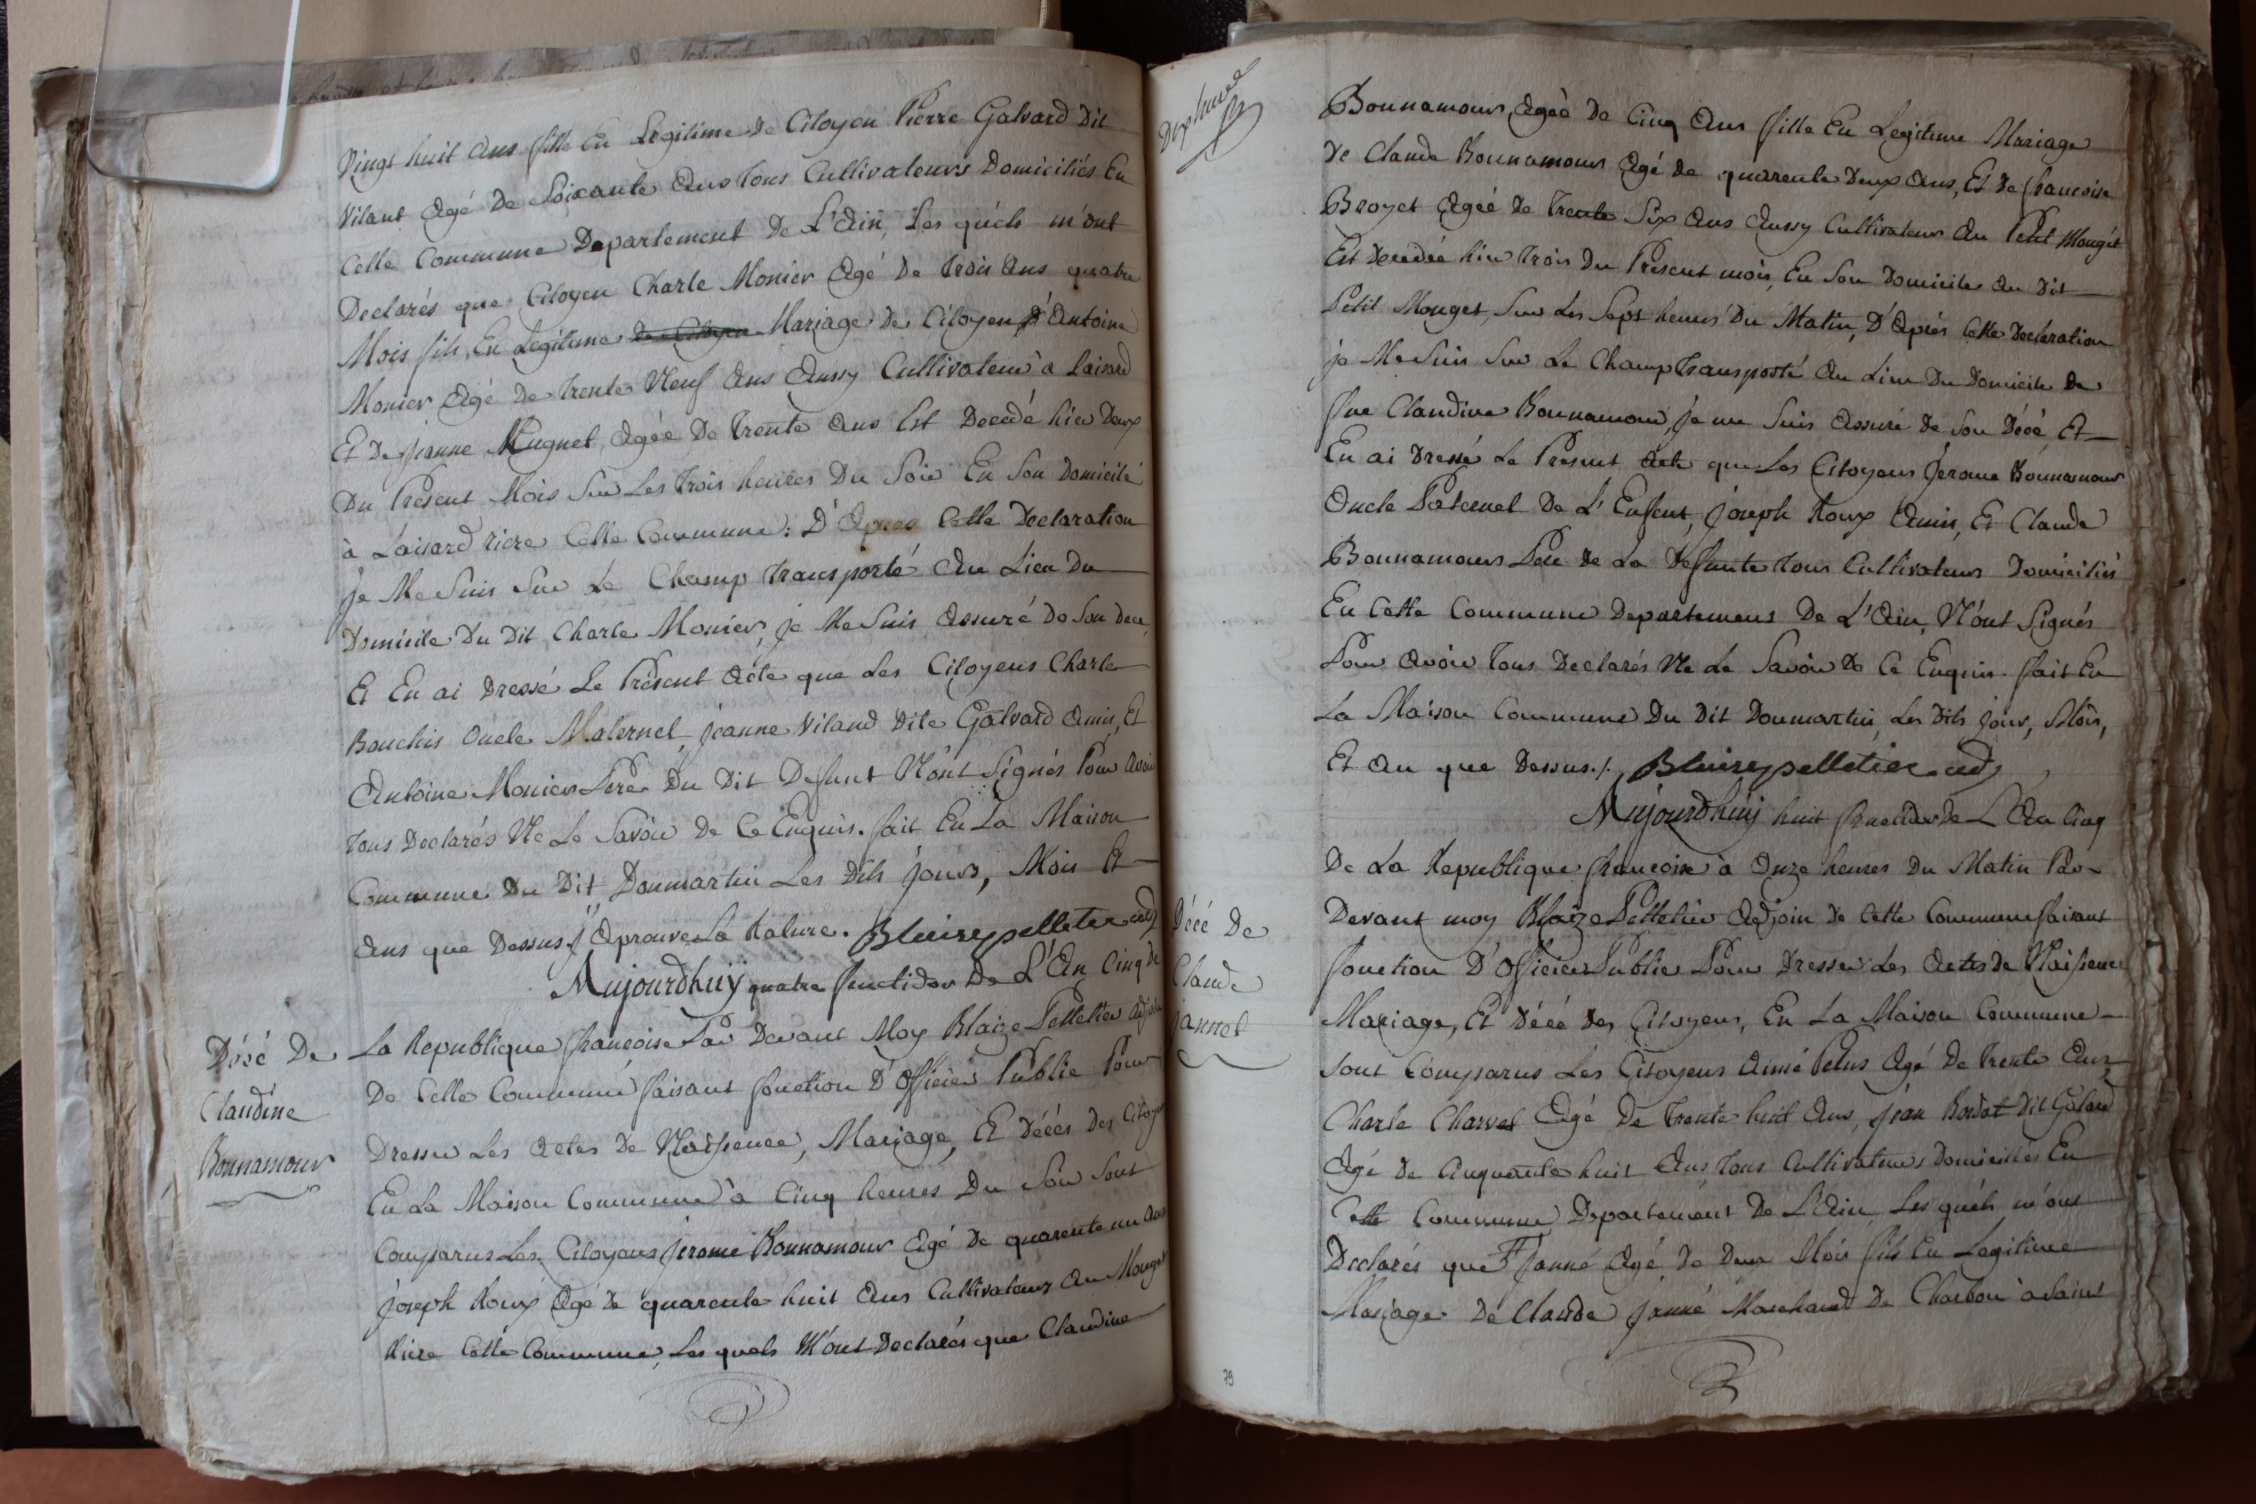 Vingt huit ans fille En Legitime de Citoyen Pierre Galvard Dit
Vilant Agé De Soixante Ans Tous Cultivateurs Domiciliés En
Cette Commune Departement De L'Ain, Les quéls m'ont
Declarés que Citoyen Charle Monier Agé De trois Ans quatre
Mois fils En Legitime de Citoyen Mariage De Citoyen D'Antoine
Monier Agé De trente Neuf Ans Aussy Cultivateur à Laisard
Et De jeanne Mugnet, Agée De trente Ans Est Decedé hier Deux
Du Présent Mois Sur Les trois heures Du Soir En Son Domicile
à Laisard riere Cette Commune: D'Apres Cette Declaration
je Me Suis Sur Le Champ transporté Au Lieu Du
Domicile Du Dit Charle Monier, je Me Suis Assuré De Son Decé,
Et En ai Dressé Le Présent Acte que Les Citoyens Charle
Bouchis Oncle Maternel, jeanne Viland Dite Galvard Amis, Et
Antoine Monier Pere Du Dit Defunt N'ont Signés Pour Avoir
Tous Declarés Ne Le Savoir De Ce Enquis. fait En La Maison
Commune Du Dit Donmartin Les Dits jours, Mois Et
Ans que Dessus./. Aprouve La Rature. Blaize pelletier adj
Aujourdhuÿ quatre fructidor De L'An Cinq de
Décé De
Claudine
Bonnamour
La Republique françoise Par Devant Moy Blaize Pelletier adjoin
De Cette Commune faisant fonction D'Officier Public Pour
Dresser Les Actes de Naissence, Mariage, Et Décés Des Citoyens
En La Maison Commune à Cinq heures Du Soir Sont
Comparus Les Citoyens jerome Bonnamour Agé De quarente un Ans
joseph Roux Agé De quarente huit Ans Cultivateurs Au Mouget
Riere Cette Commune, Les quels M'ont Declarés que Claudine
Bonnamour, Agéé De Cinq Ans fille En Legitime Mariage
De Claude Bonnamour Agé de quarente Deux Ans, Et De francoise
Broyet Agéé De Trente Six Ans Aussy Cultivateur Au Petit Mougét
Est Decedéé hier trois Du Présent mois, En Son Domicile Au Dit
Petit Mouget, Sur Les Sept heures Du Matin, D'Aprés Cette Declaration
je Me Suis Sur Le Champ Transporté Au Lieu Du Domicile De
fue Claudine Bonnamour, je me Suis Assuré de Son Décé Et
En ai Dressé Le Présent Acte que Les Citoyens jerome Bonnamour
Oncle Paternel De L'Enfent, joseph Roux Amis, Et Claude
Bonnamours Pere De La Défunte Tous Cultivateurs Domiciliés
En Cette Commune Departement De L'Ain, N'ont Signés
Pour Avoir Tous Declarés Ne Le Savoir De Ce Enquis. fait En
La Maison Commune Du Dit Donmartin, Les Dits jour, Mois,
Et An que Dessus./. Blaize pelletier adj
Aujourdhuÿ huit fructidor De L'An Cinq
De La Republique françoise à Onze heures Du Matin Par
Décé De
Claude
jannet
Devant moy Blaize Pelletier Adjoin De Cette Commune faisant
fonction D'Officier Public Pour Dresser Les Actes De Naissence
Mariage, Et Décé Des Citoyens, En La Maison Commune
Sont Comparus Les Citoyens Aimé Petus Agé De Trente Ans
Charle Charvet Agé De Trente huit Ans, jean Bordat Dit Galard
Agé De Cinquante huit Ans Tous Cultivateurs Domiciliés En
Cette Commune Departement De L'Ain, Les quéls m'ont
Declarés que janné Agé De Deux Mois fils En Legitime
Mariage De Claude janné Marchand De Charbon à Saint
79